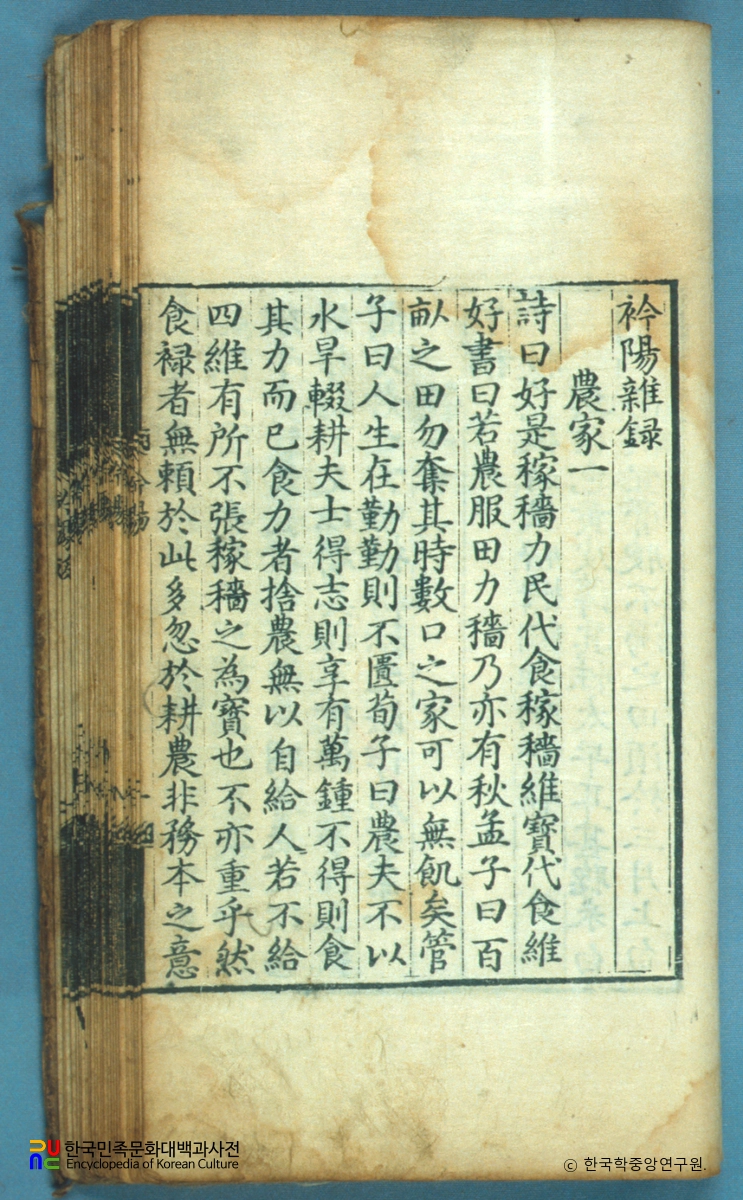 衿陽雜録
農家一
詩曰好是稼穡力民代食稼穡維寶代食維
好書曰若農服田力穡乃亦有秋孟子曰百
畝之田勿奪其時數口之家可以無飢矣管
子曰人生在勤勤則不匱荀子曰農夫不以
水旱輟耕夫士得志則享有萬鍾不得則食
其力而已食力者捨農無以自給人若不給
四維有所不張稼穡之為寶也不亦重乎然
食祿者無賴於此多忽於耕農非務本之意
한국민족문화대백과사전
Encyclopedia of Korean Culture
© 한국학중앙연구원.